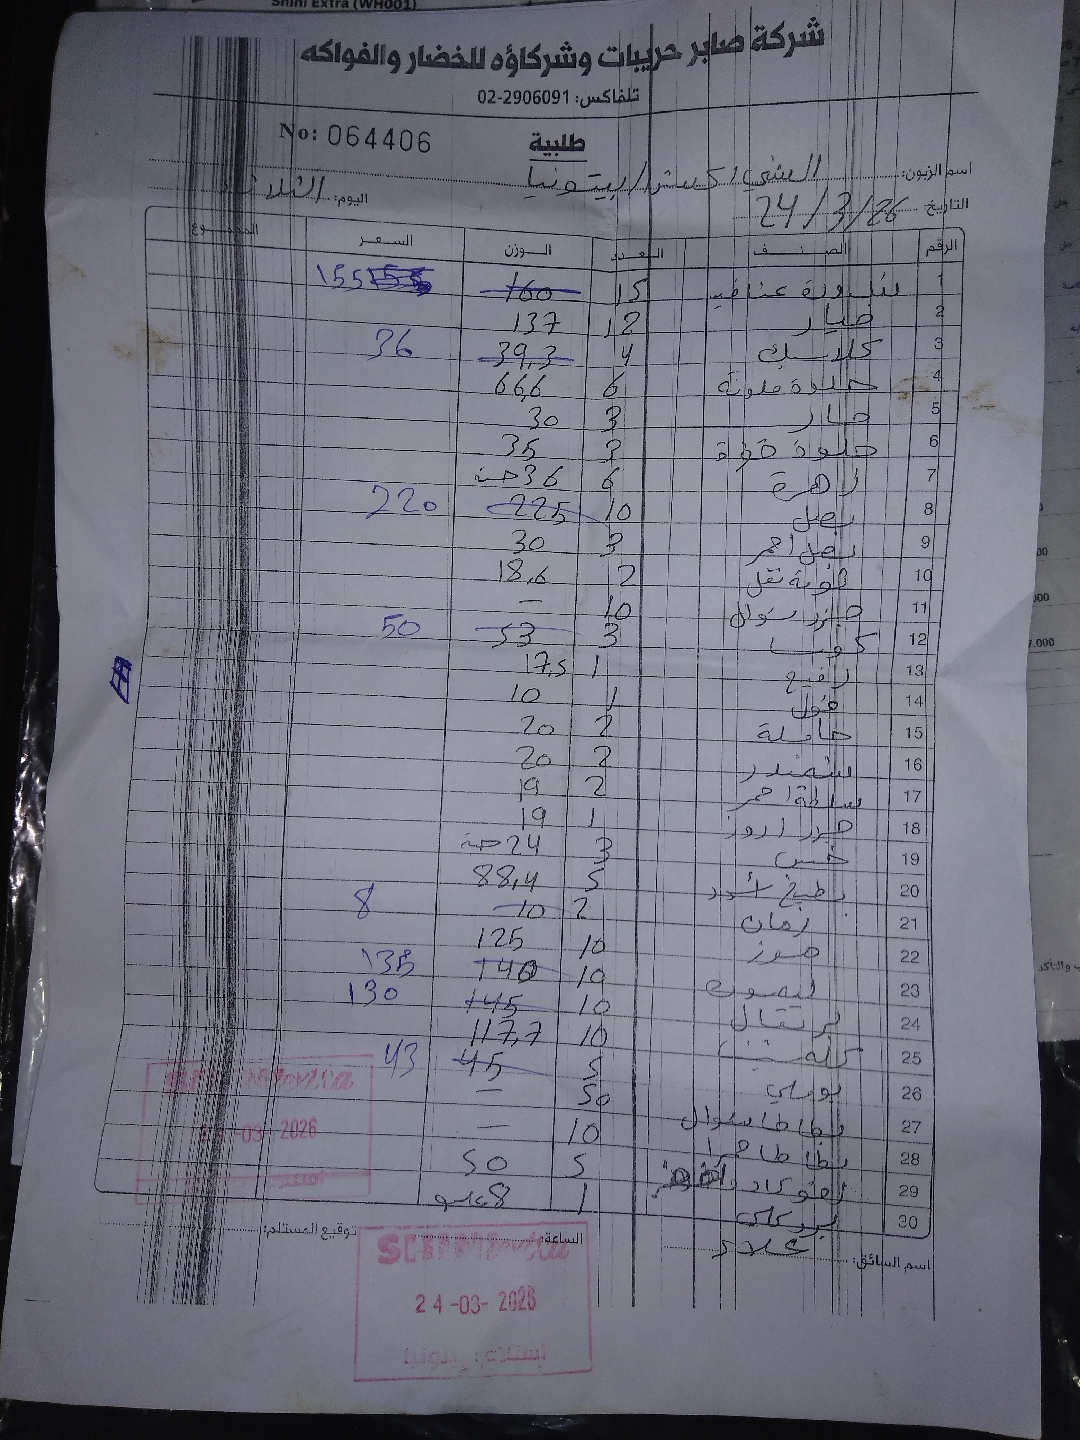 Shini Extra (WH001)
شركة صابر حريبات وشركاؤه للخضار والفواكه
تلفاكس: 02-2906091
No: 064406
طلبية
اسم الزبون: الشني اكسترا / بيتونيا
اليوم: الثلاثاء
التاريخ 24/3/26
الرقم الصنف العدد الوزن السعر المجموع
1 بندورة عناقيد 15 160 155
2 خيار 12 137
3 كلاسيك 4 39,3 36
4 حلوة ملونة 6 66,6
5 حار 3 30
6 حلوة 3 35
7 زهرة 6 36 حبة
8 بصل 10 225 220
9 بصل احمر 3 30
10 2 18,6
11 جزر سوال 10 —
12 كوسا 3 53 50
13 1 17,5
14 فول 1 10
15 2 20
16 شمندر 2 20
17 2 19
18 1 19
19 خس 3 24 حبة
20 بطيخ 5 88,4
21 رمان 2 10 8
22 موز 10 125
23 ليمون 10 140 135
24 برتقال 10 145 130
25 10 117,7
26 بوملي 5 45 43
27 بطاطا سوال 50 —
28 بطاطا 10 —
29 افوكادو 5 50
30 بروكلي 1 8
اسم السائق: علاء
الساعة:
توقيع المستلم:
2026
24-03-2026
إستلام: بيتونيا